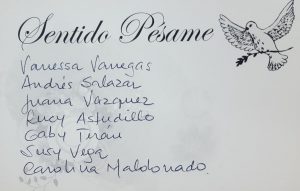 Sentido Pésame
Vanessa Vanegas
Andrés Salazar
Juana Vazquez
Lucy Astudillo
Gaby Terán
Susy Vega
Carolina Maldonado.